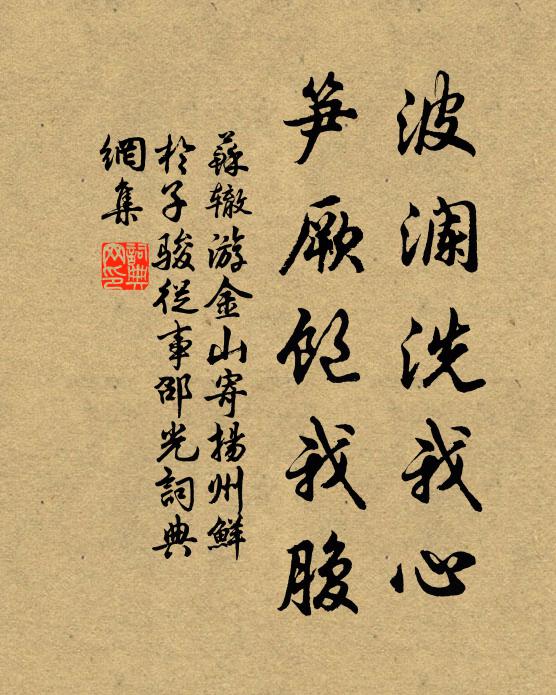 波澜洗我心
笋蕨饱我腹
蘇辙游金山寄揚州鮮
於子駿從事邵光詞典
網集
詞典網印